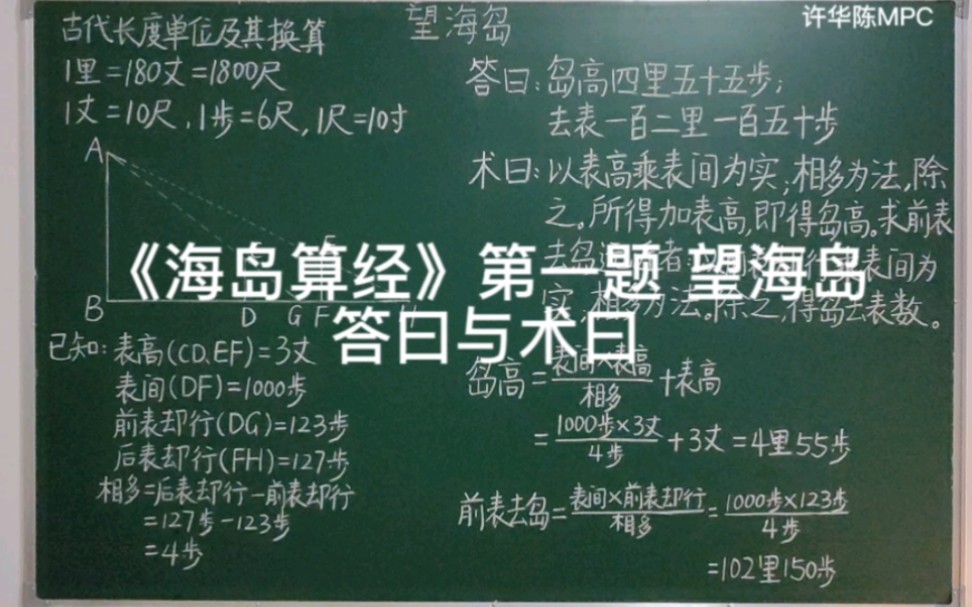 许华陈MPC
望海岛
古代长度单位及其换算
1里=180丈=1800尺
1丈=10尺,1步=6尺,1尺=10寸
A
B
D
G
F
已知:表高(CD、EF)=3丈
表间(DF)=1000步
前表却行(DG)=123步
后表却行(FH)=127步
相多=后表却行-前表却行
=127步-123步
=4步
答曰:岛高四里五十五步;
去表一百二里一百五十步
术曰:以表高乘表间为实;相多为法,除
之。所得加表高,即得岛高。求前表
去岛 表间为
相多为法。除之,得岛去表数。
《海岛算经》第一题 望海岛
答曰与术曰
岛高=表间×表高/相多+表高
=1000步×3丈/4步+3丈=4里55步
前表去岛=表间×前表却行/相多=1000步×123步/4步
=102里150步